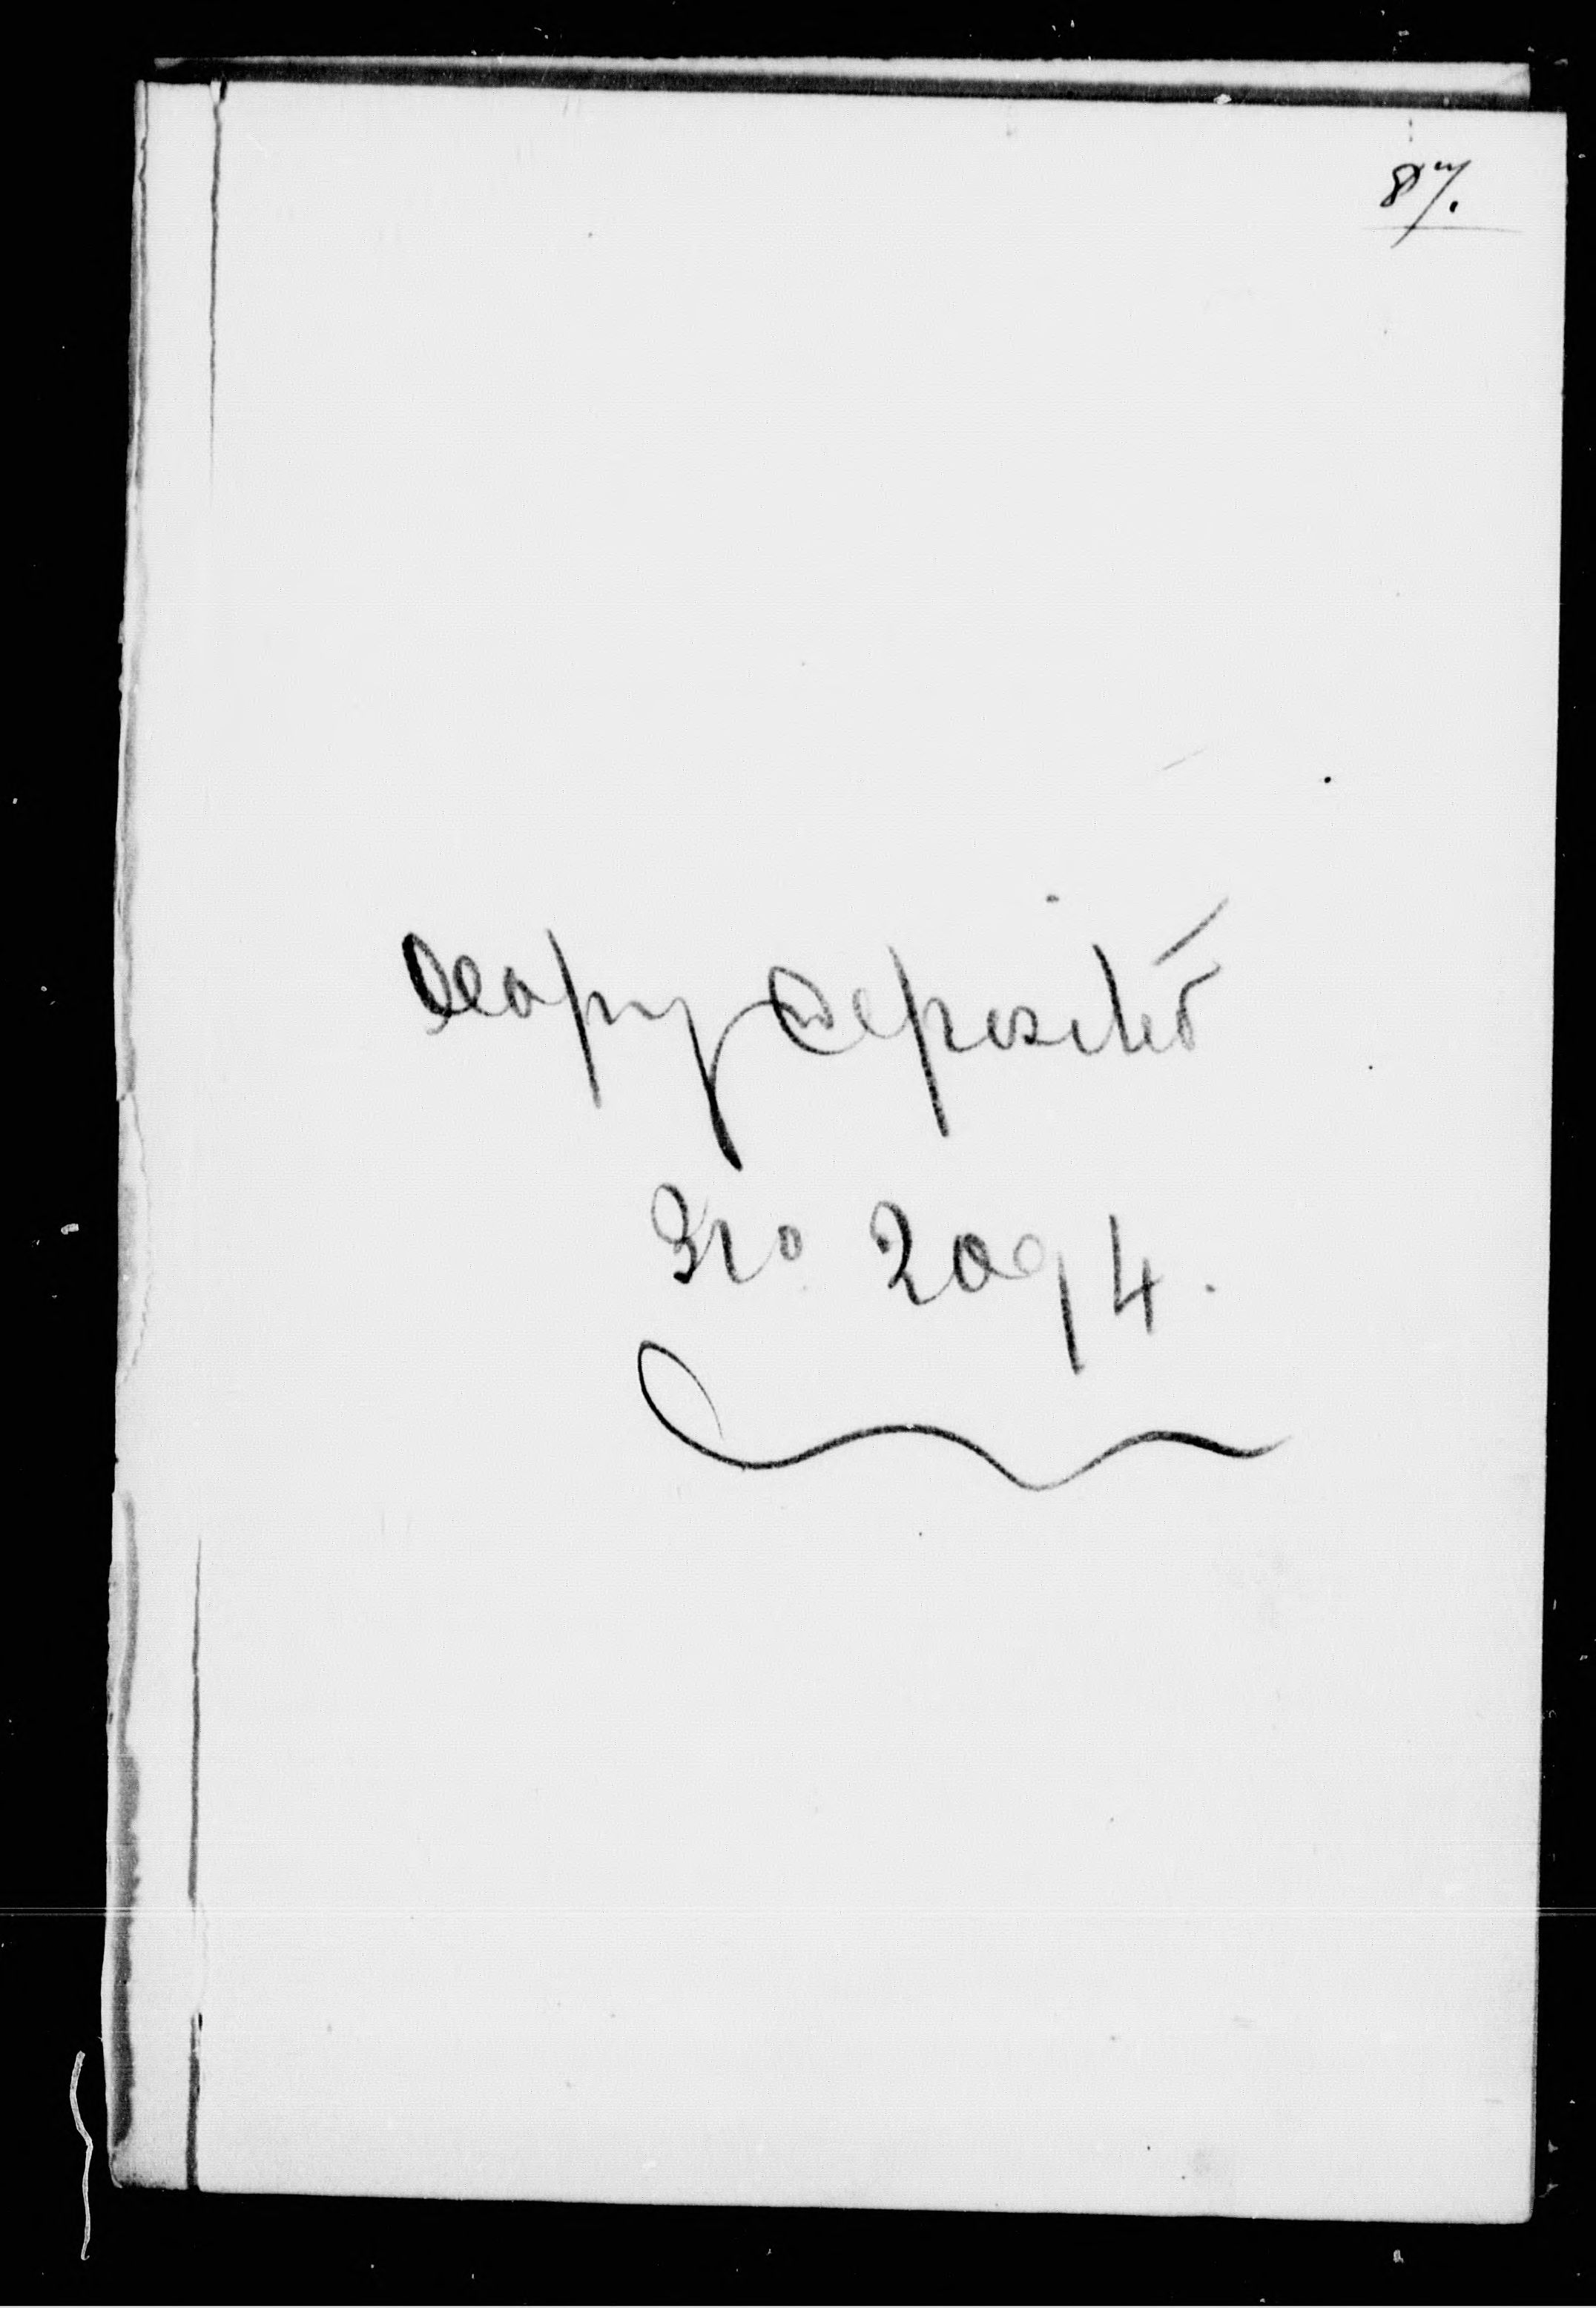 87.
Copy Deposited
No 2094.